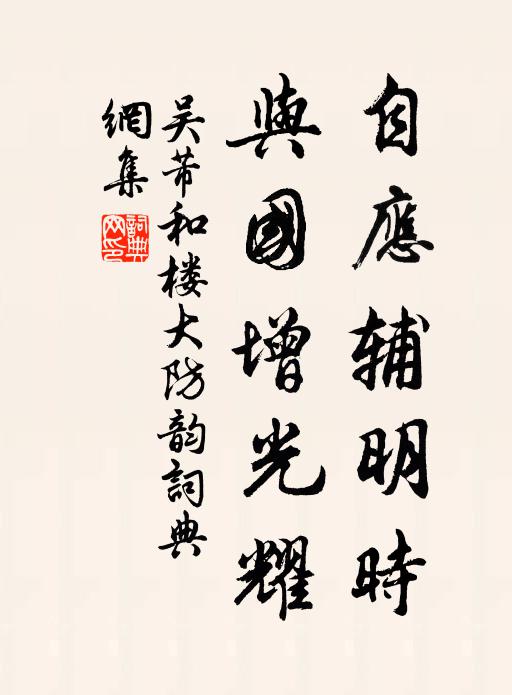 自應辅明時
與國增光耀
吴芾和楼大防韵詞典
網集
詞典网印